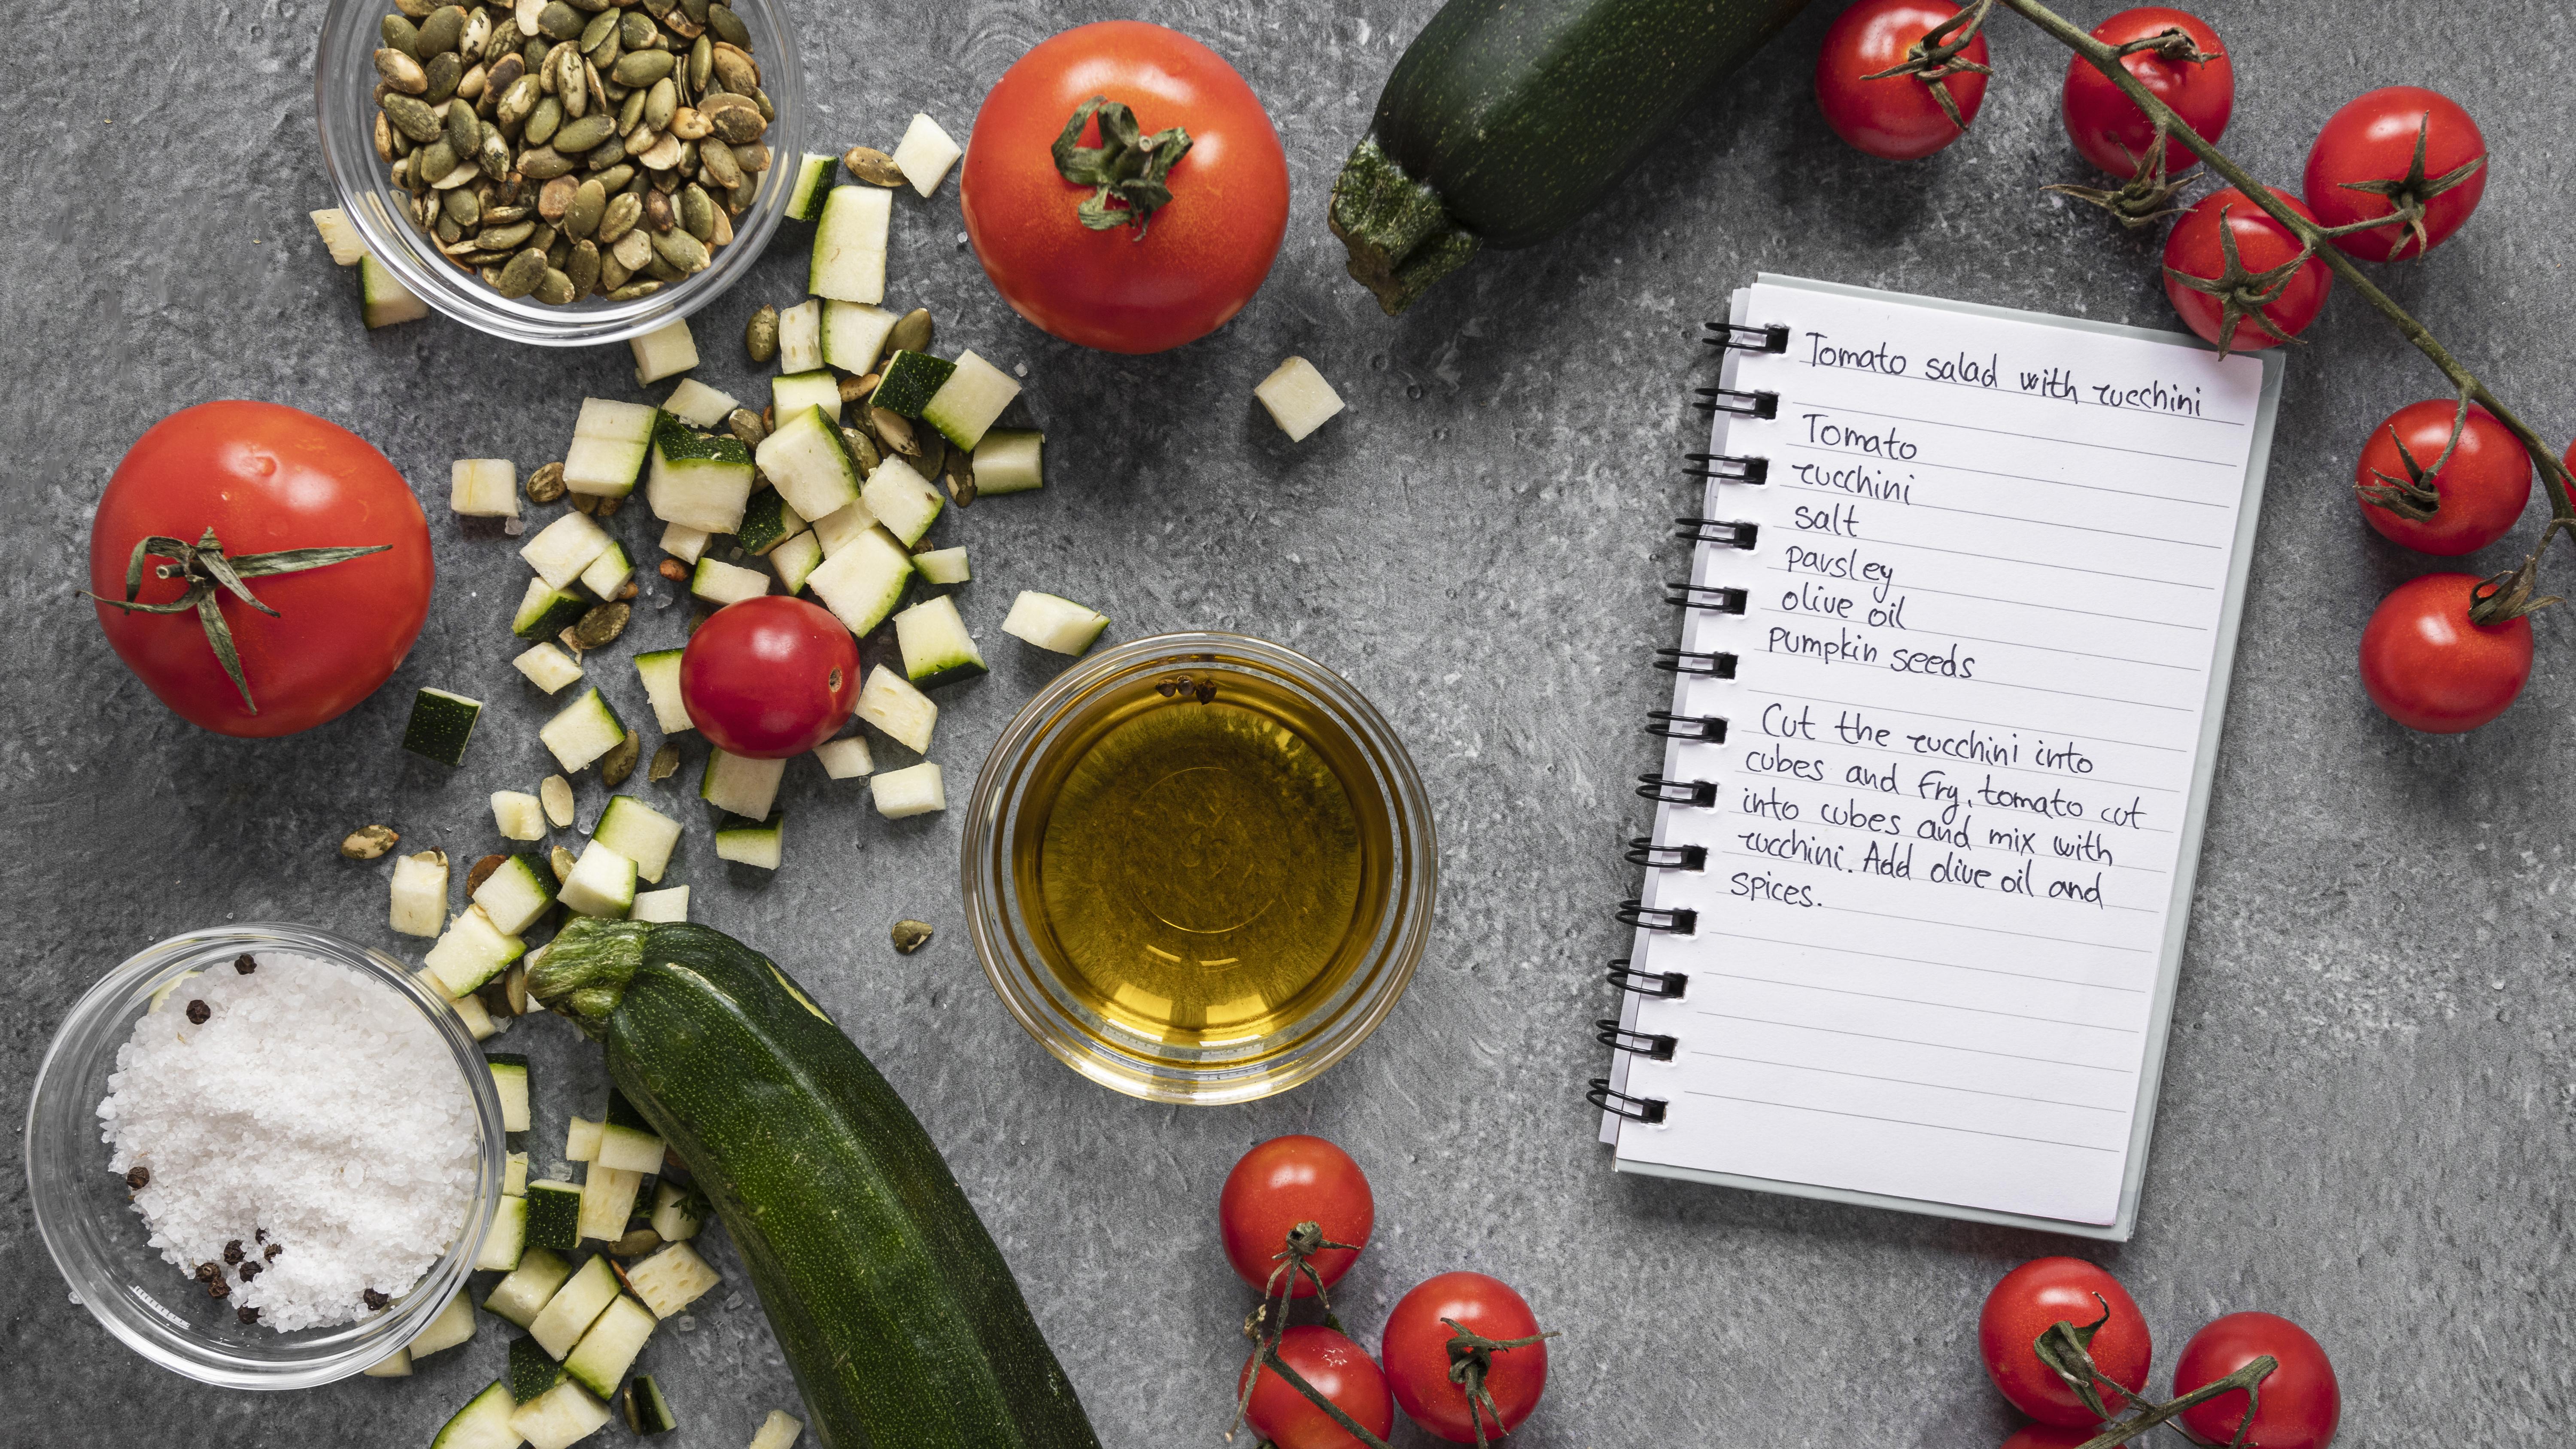 Tomato salad with zucchini
Tomato
zucchini
salt
parsley
olive oil
pumpkin seeds
Cut the zucchini into
cubes and fry. tomato cut
into cubes and mix with
zucchini. Add olive oil and
spices.